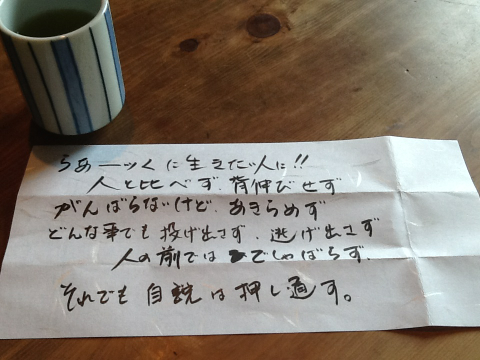 らあーッくに生きたい人に!!
人と比べず、背伸びせず
がんばらないけど、あきらめず
どんな事でも投げ出さず、逃げ出さず
人の前ではでしゃばらず、
それでも自説は押し通す。